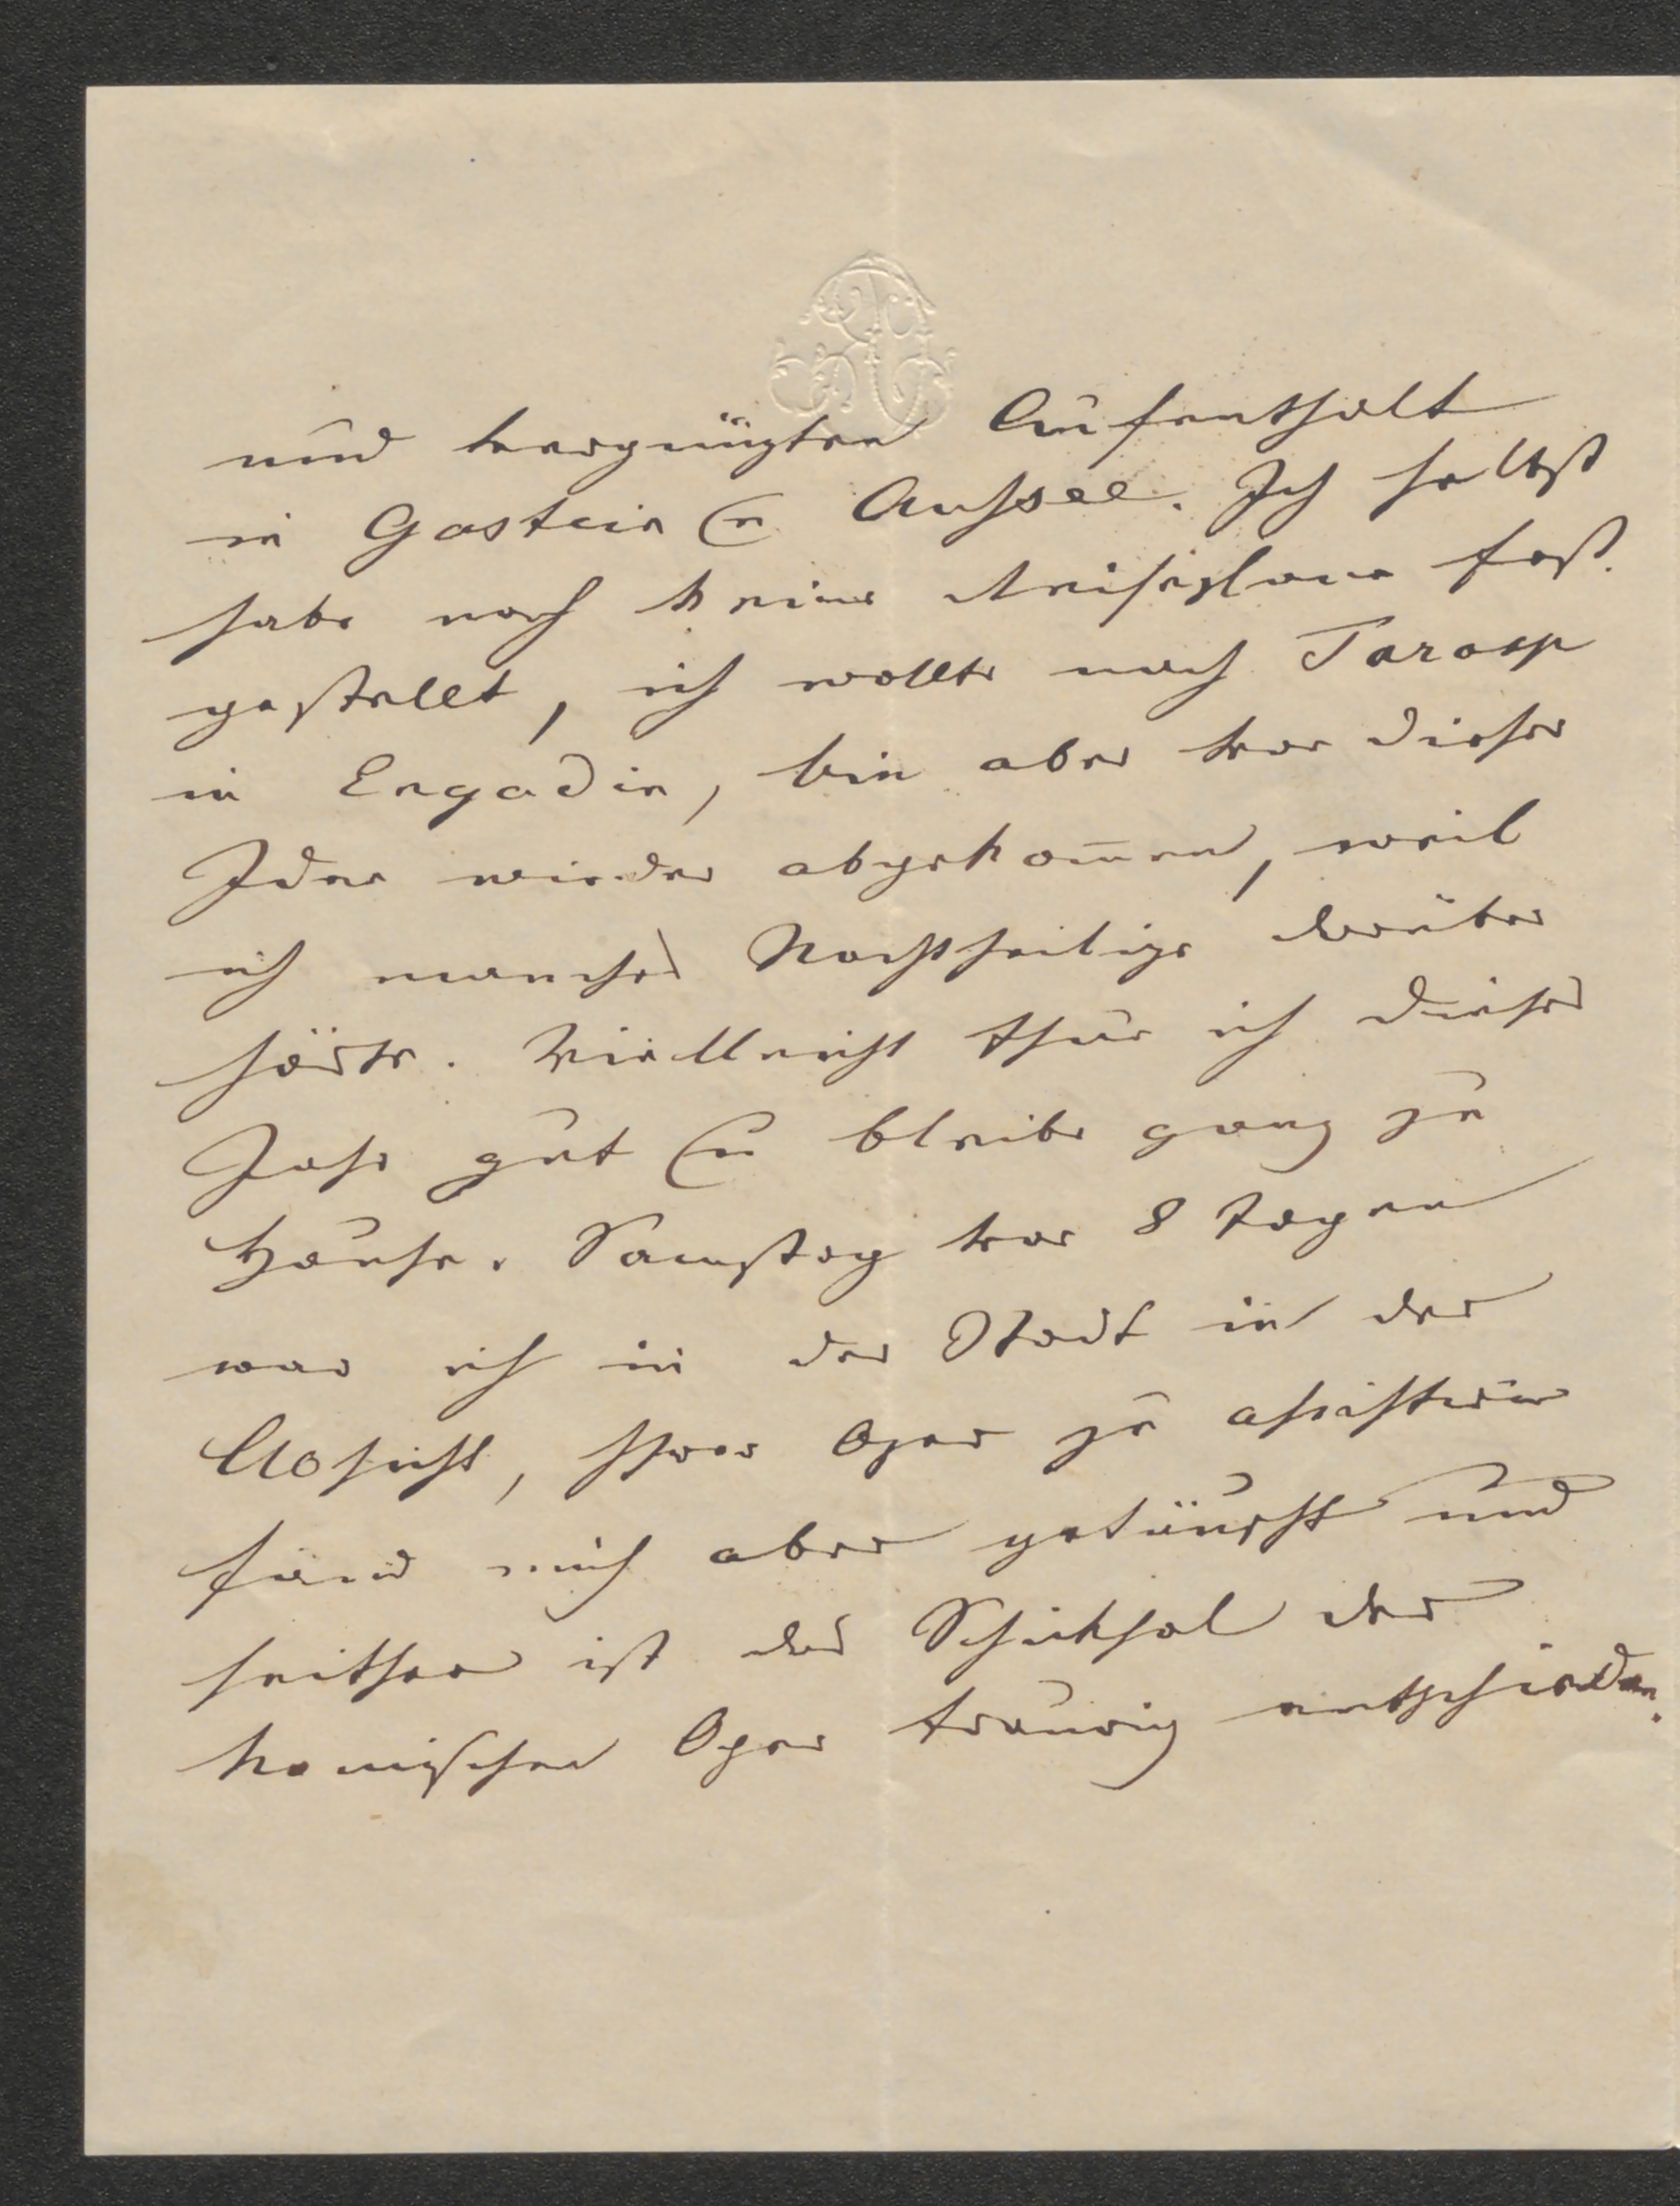 und vergnügten Aufenthalt
in Gastein & Aussee. Ich selbst
habe noch keine Reisepläne fest
gestellt, ich wollte nach Tarasp
in Engadin, bin aber von dieser
Idee wieder abgekom̄en, weil
ich manches Nachtheilige darüber
hörte. Vielleicht thue ich dieses
Jahr gut & bleibe ganz zu
Hause. Samstag vor 8 Tagen
war ich in der Stadt in der
Absicht, Ihrer Oper zu assistiren
fand mich aber getäuscht und
seither ist das Schicksal der
komischen Oper traurig entschieden.